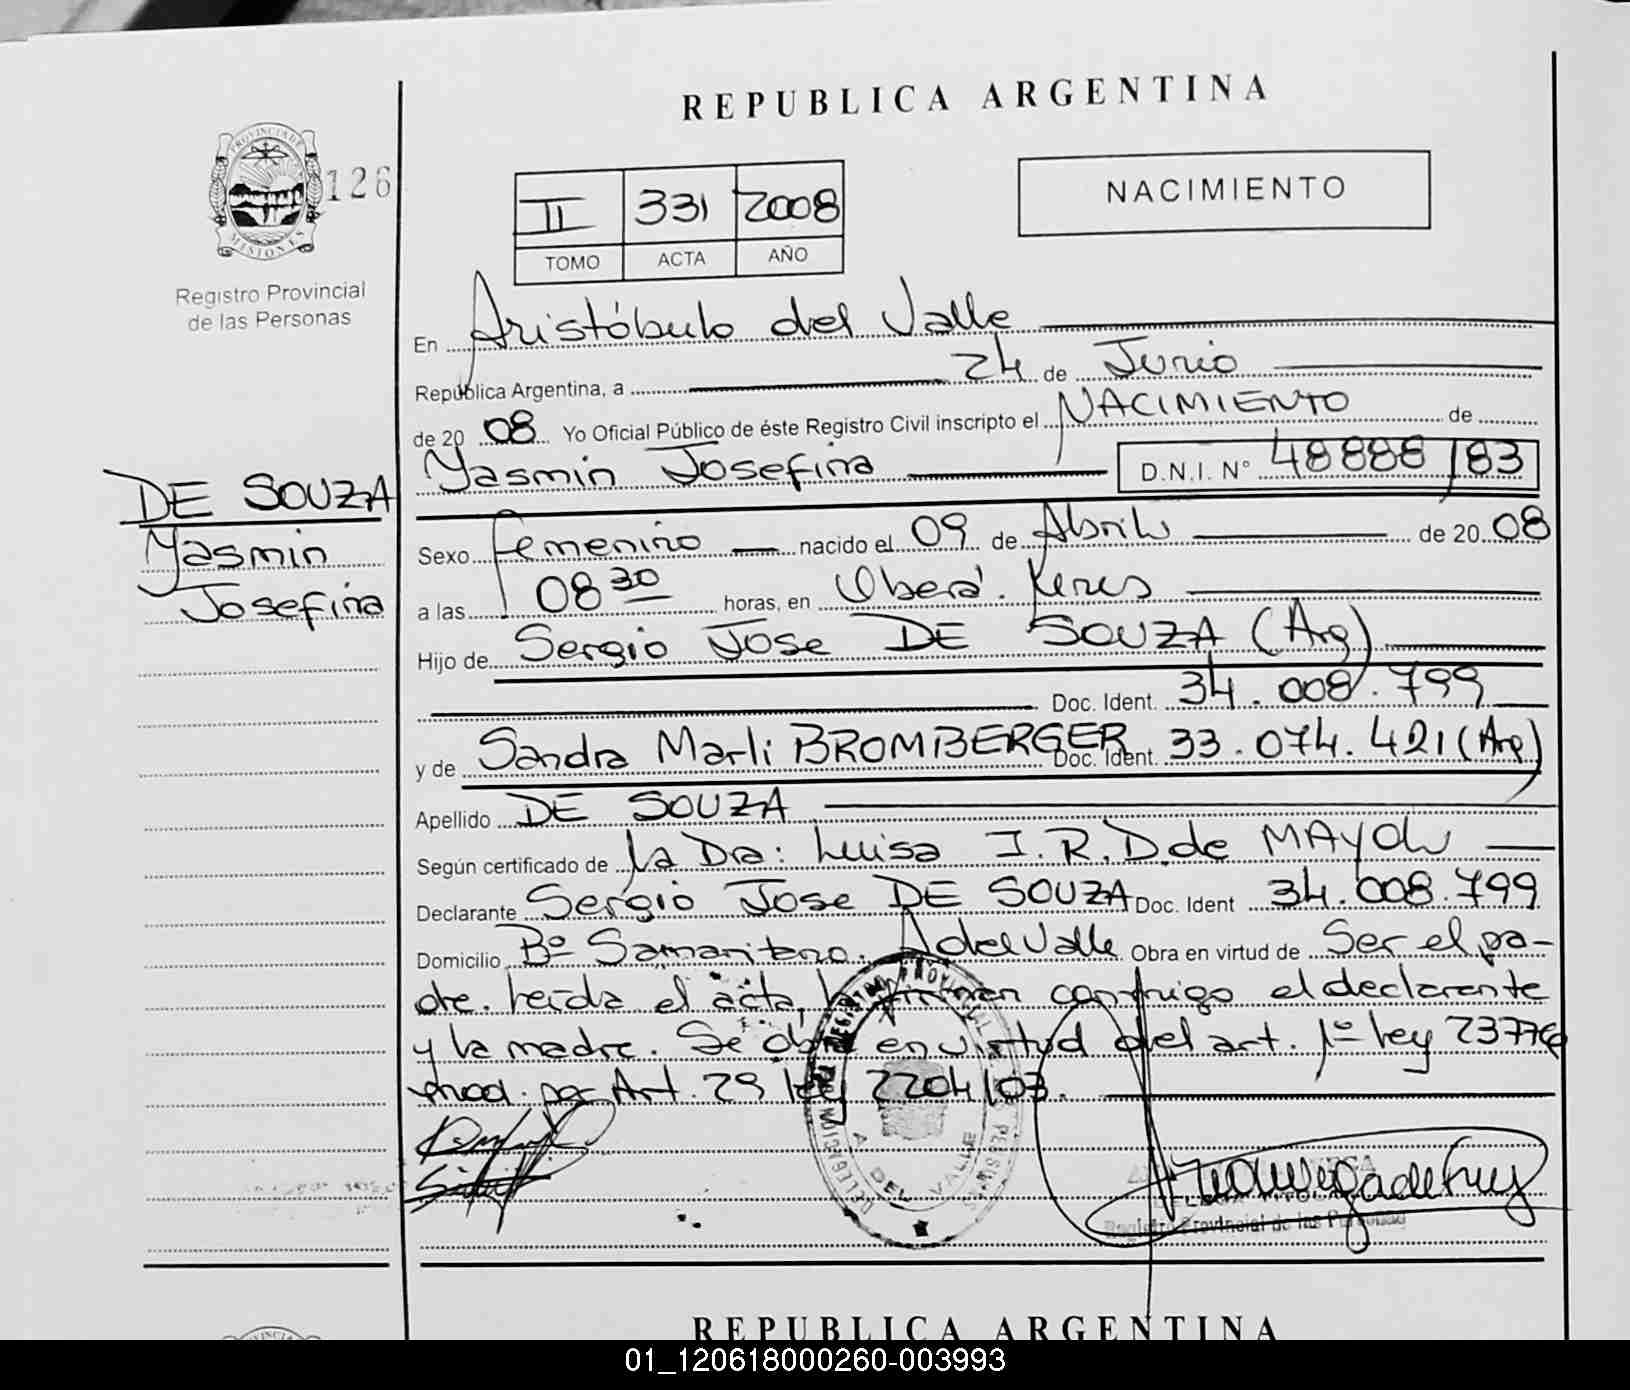 REPUBLICA ARGENTINA
PROVINCIA DE
MISIONES
126
Registro Provincial
de las Personas
II 331 2008
TOMO ACTA AÑO
NACIMIENTO
En Aristóbulo del Valle
República Argentina, a 24 de Junio
de 20 08 Yo Oficial Público de éste Registro Civil inscripto el NACIMIENTO de
Yasmin Josefina D.N.I. N° 48888183
DE SOUZA
Yasmin
Josefina
Sexo femenino nacido el 09 de Abril de 20 08
a las 08 30 horas, en Oberá.
Hijo de Sergio Jose DE SOUZA (Arg)
Doc. Ident. 34.008.799
y de Sandra Marli BROMBERGER Doc. Ident. 33.074.421 (Arg)
Apellido DE SOUZA
Según certificado de La Dra: Luisa I. R. D. de MAYOL
Declarante Sergio Jose DE SOUZA Doc. Ident 34.008.799
Domicilio Bº Samaritano. A del Valle Obra en virtud de Ser el pa-
dre. Leída el acta, la firman conmigo el declarante
y la madre. Se obra en virtud del art. 1º ley 23776
mod. por Art. 29 ley 2204/03.
A. DEL VALLE
Registro Provincial de las Personas
REPUBLICA ARGENTINA
01_120618000260-003993